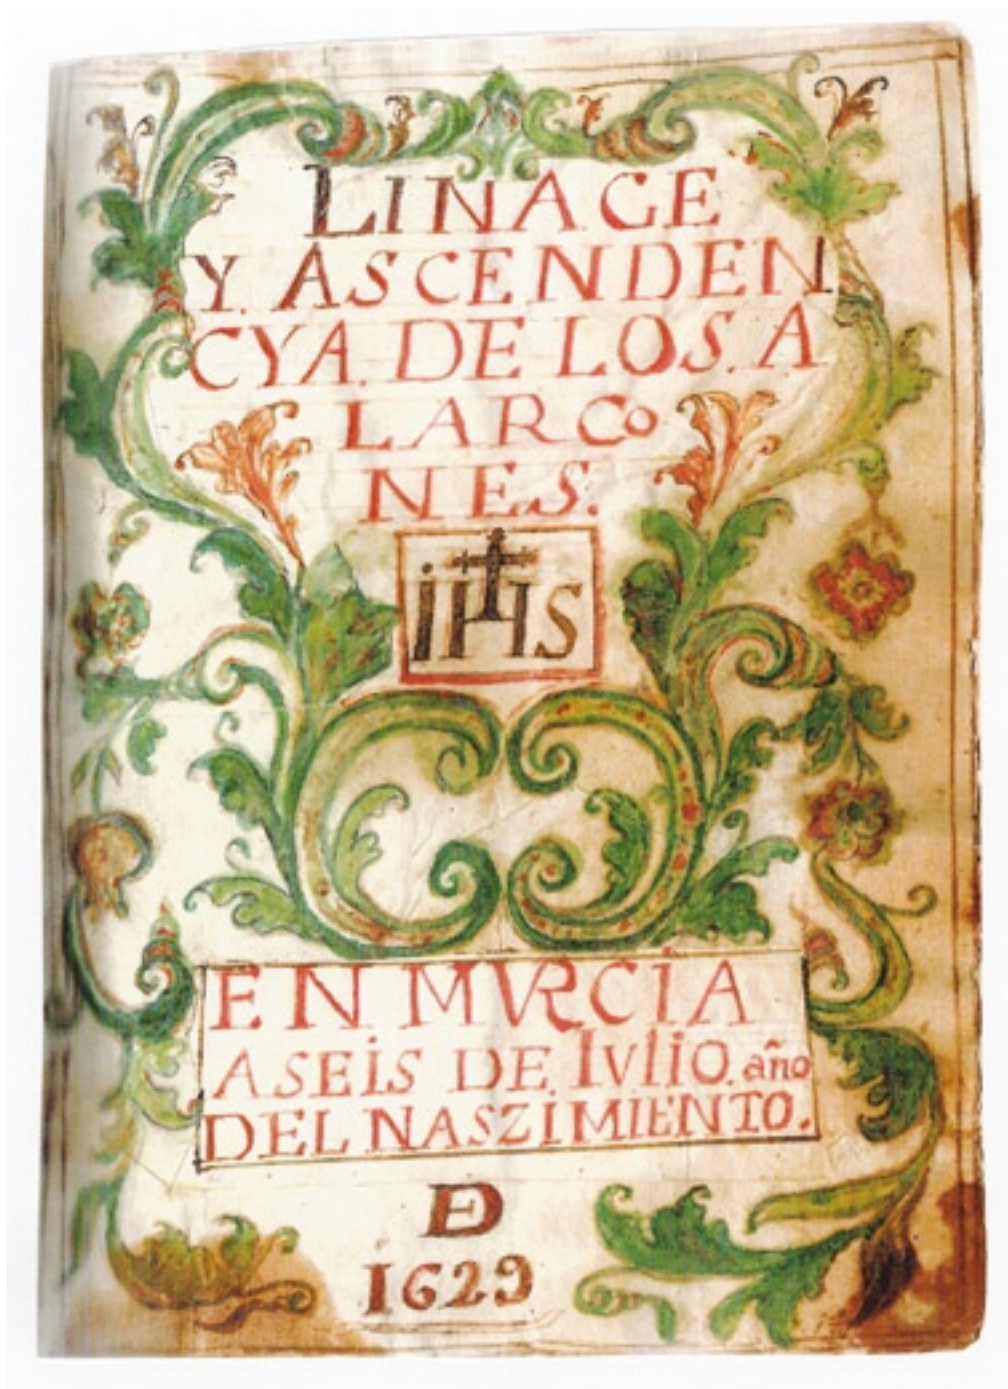 LINAGE
Y. ASCENDEN
CYA. DE LOS. A
LARCO
NES.
IHS
EN MVRCIA
A SEIS DE IVLIO. año
DEL NASZIMIENTO.
DE
1629